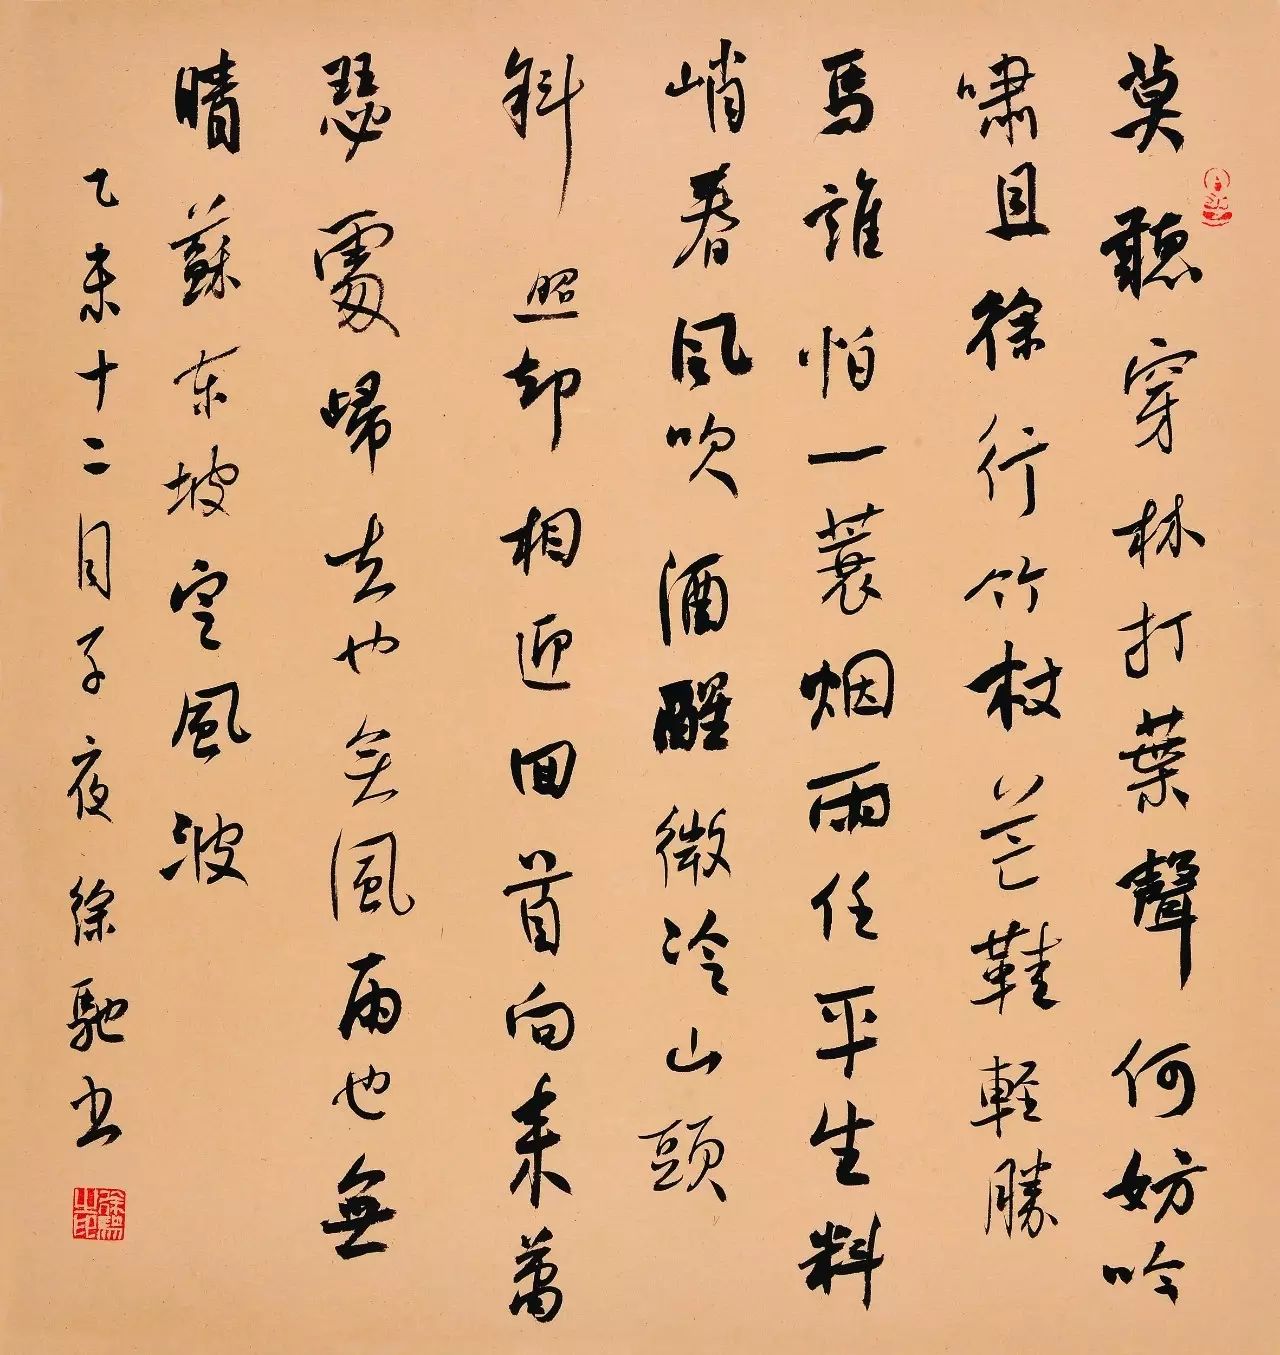 莫聽穿林打葉聲何妨吟
嘯且徐行竹杖芒鞋軽勝
馬誰怕一蓑烟雨任平生料
峭春風吹酒醒微冷山頭
斜照却相迎回首向来蕭
瑟處歸去也無風雨也無
晴蘇東坡定風波
乙未十二月子夜徐馳书
徐馳之印